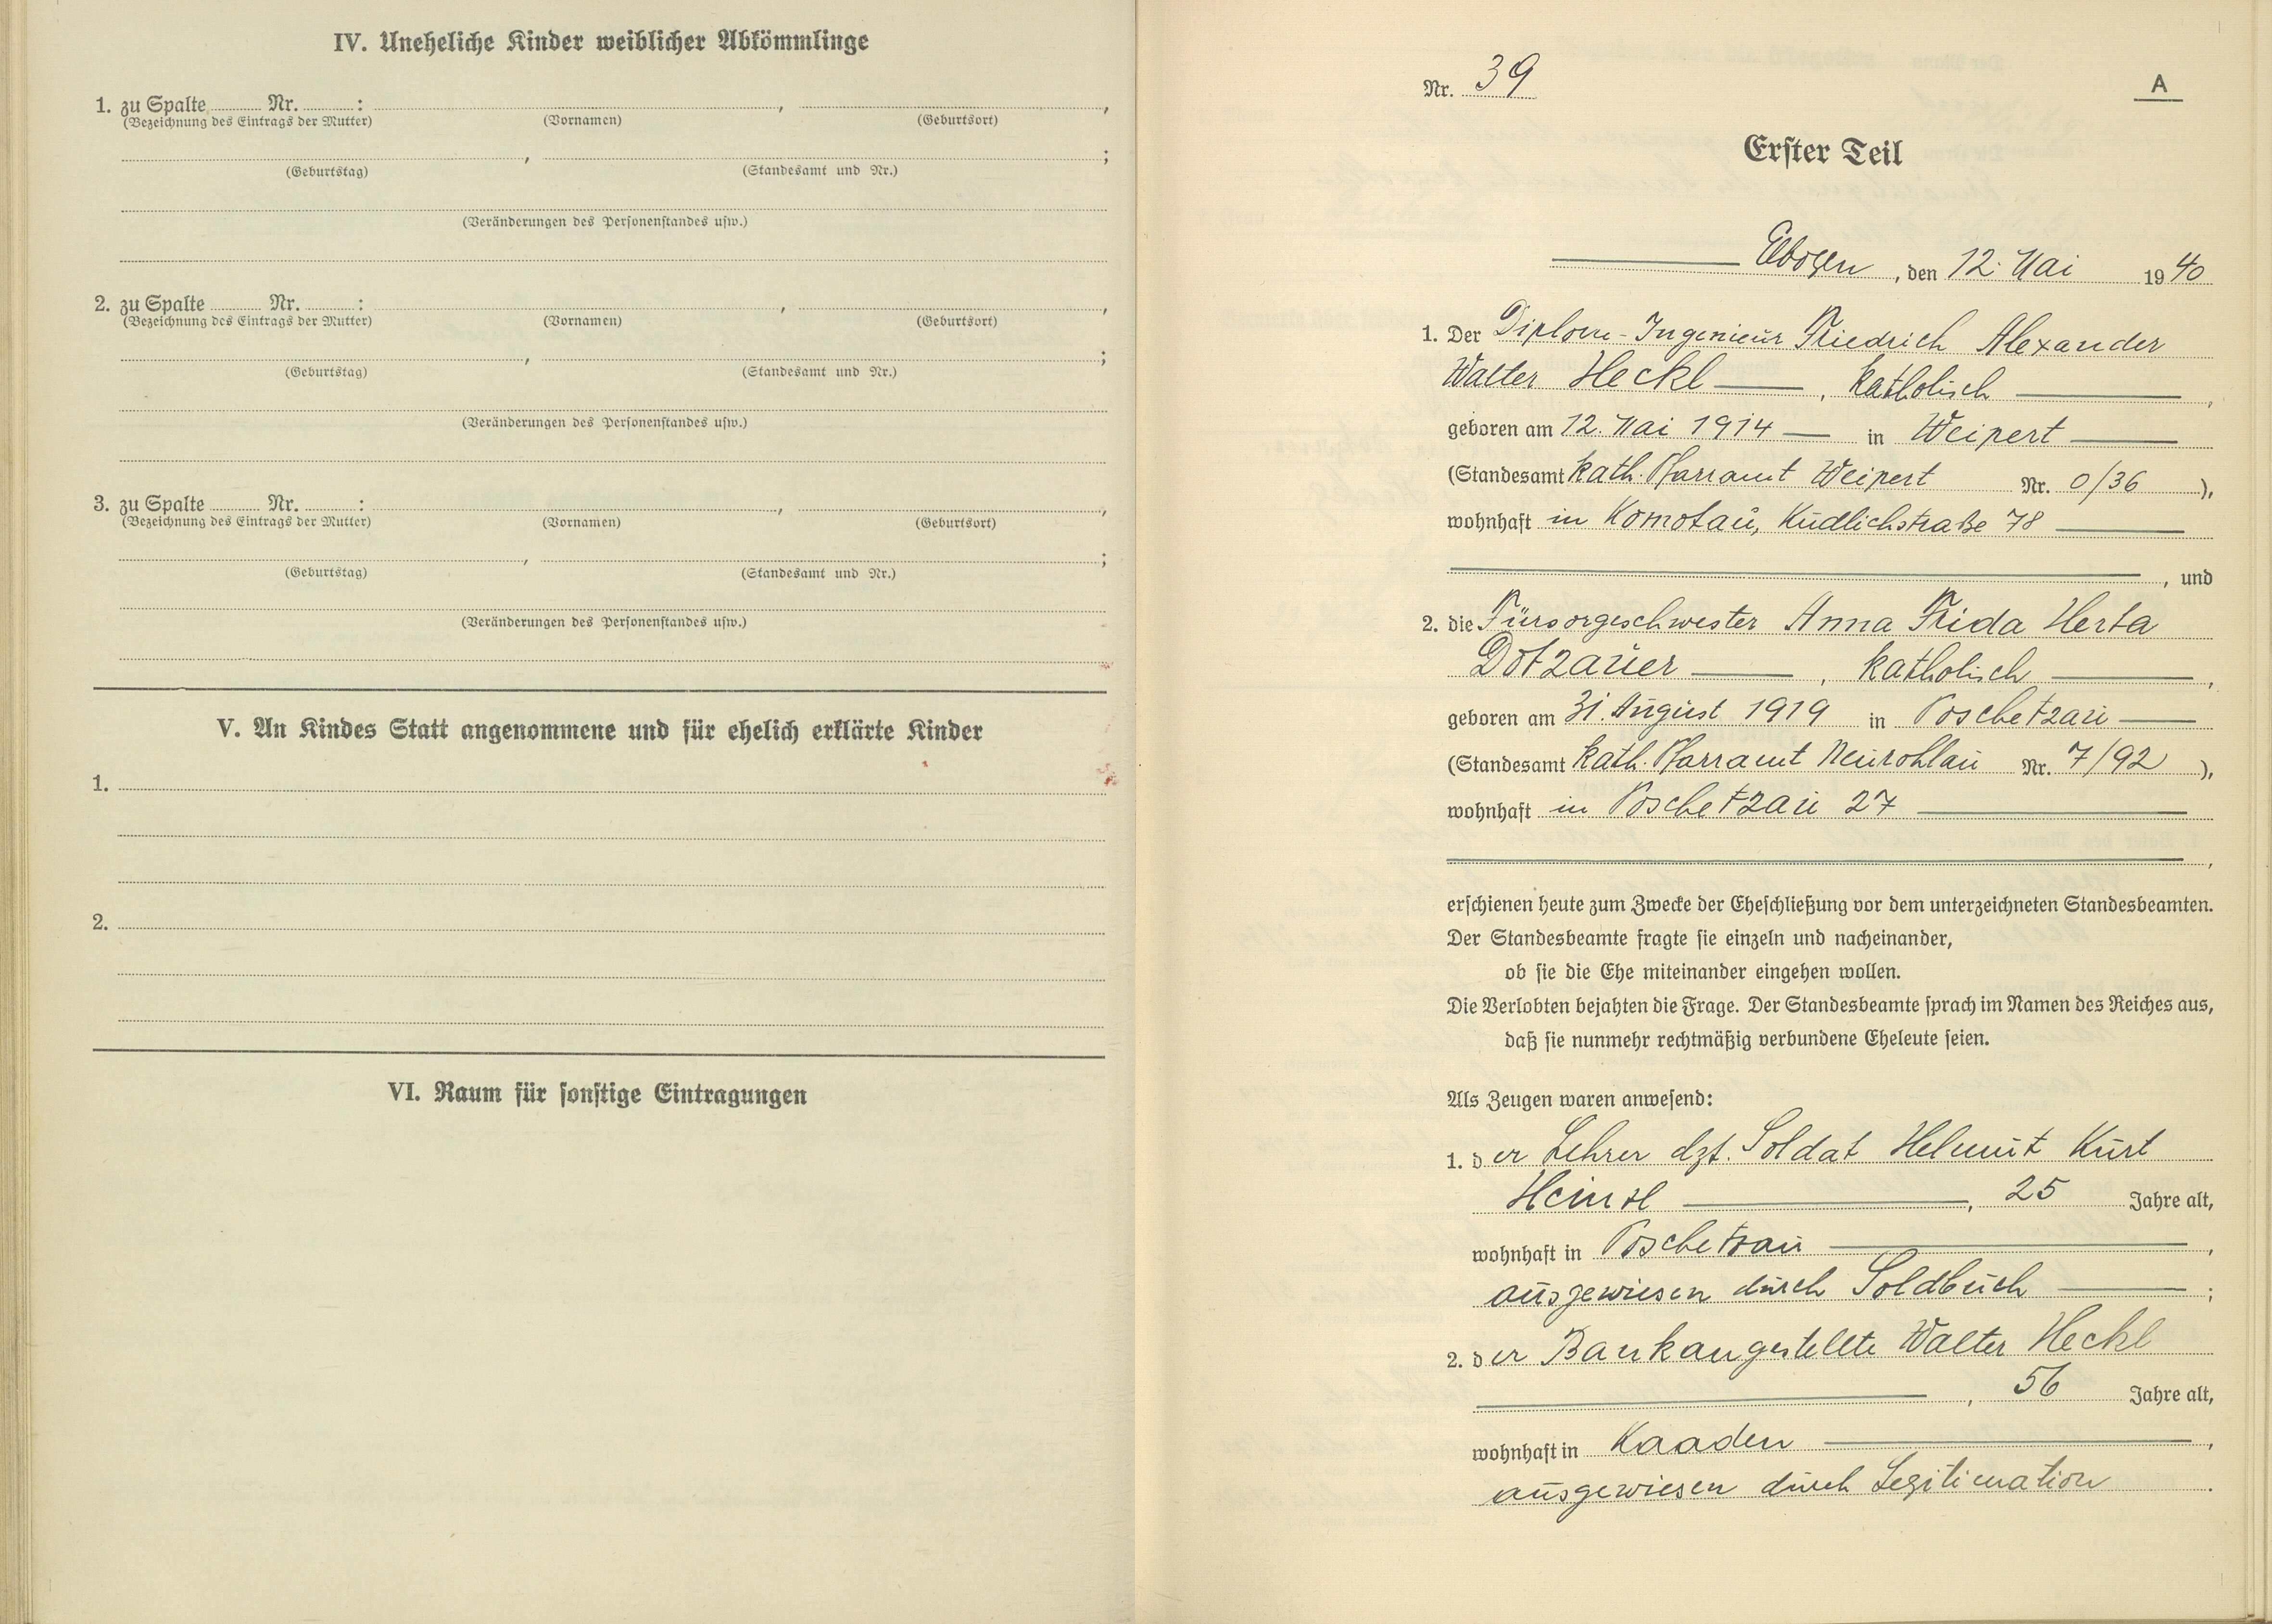 IV. Uneheliche Kinder weiblicher Abkömmlinge
1. zu Spalte ........ Nr. ........ : , ,
(Bezeichnung des Eintrags der Mutter) (Vornamen) (Geburtsort)
, ;
(Geburtstag) (Standesamt und Nr.)
(Veränderungen des Personenstandes usw.)
2. zu Spalte ........ Nr. ........ : , ,
(Bezeichnung des Eintrags der Mutter) (Vornamen) (Geburtsort)
, ;
(Geburtstag) (Standesamt und Nr.)
(Veränderungen des Personenstandes usw.)
3. zu Spalte ........ Nr. ........ : , ,
(Bezeichnung des Eintrags der Mutter) (Vornamen) (Geburtsort)
, ;
(Geburtstag) (Standesamt und Nr.)
(Veränderungen des Personenstandes usw.)
V. An Kindes Statt angenommene und für ehelich erklärte Kinder
1.
2.
VI. Raum für sonstige Eintragungen
Nr. 39
A
Erster Teil
Elbogen, den 12. Mai 1940
1. Der Diplom-Ingenieur Friedrich Alexander
Walter Heckl, katholisch,
geboren am 12. Mai 1914 in Weipert
(Standesamt kath. Pfarramt Weipert Nr. 0/36),
wohnhaft in Komotau, Kudlichstraße 78
, und
2. die Fürsorgeschwester Anna Frida Herta
Dotzauer, katholisch,
geboren am 31. August 1919 in Poschetzau
(Standesamt kath. Pfarramt Neurohlau Nr. 7/92),
wohnhaft in Poschetzau 27
,
erschienen heute zum Zwecke der Eheschließung vor dem unterzeichneten Standesbeamten.
Der Standesbeamte fragte sie einzeln und nacheinander,
ob sie die Ehe miteinander eingehen wollen.
Die Verlobten bejahten die Frage. Der Standesbeamte sprach im Namen des Reiches aus,
daß sie nunmehr rechtmäßig verbundene Eheleute seien.
Als Zeugen waren anwesend:
1. der Lehrer dzt. Soldat Helmut Kurt
Heinzl, 25 Jahre alt,
wohnhaft in Poschetzau,
ausgewiesen durch Soldbuch;
2. der Bankangestellte Walter Heckl
, 56 Jahre alt,
wohnhaft in Kaaden,
ausgewiesen durch Legitimation.